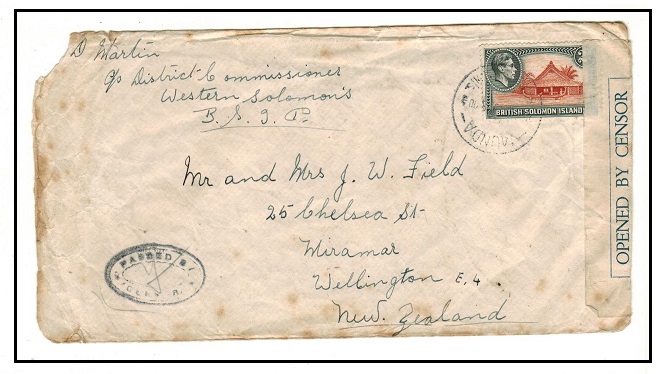 D Martin
c/o District Commissioner
Western Solomon's
B. S. I. P.
BRITISH SOLOMON ISLAND
OPENED BY CENSOR
Mr and Mrs J. W. Field
25 Chelsea St
Miramar
Wellington E. 4
New Zealand
PASSED